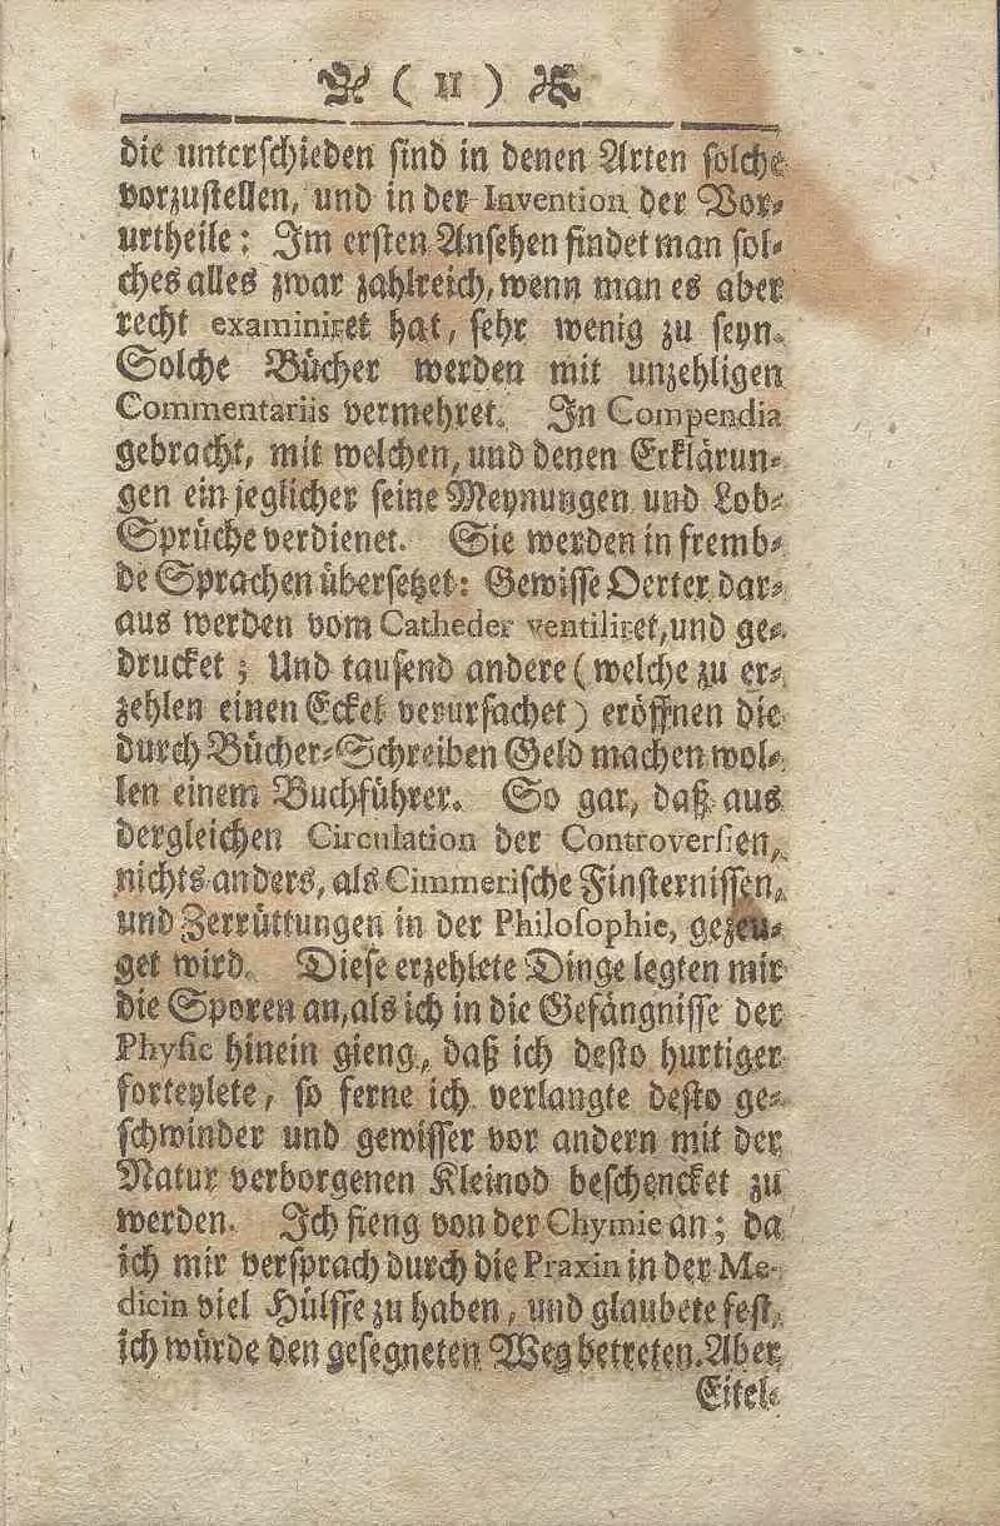 ( 11 )
die unterschieden sind in denen Arten solche
vorzustellen, und in der Invention der Vor-
urtheile: Im ersten Ansehen findet man sol-
ches alles zwar zahlreich, wenn man es aber
recht examiniret hat, sehr wenig zu seyn.
Solche Bücher werden mit unzehligen
Commentariis vermehret. In Compendia
gebracht, mit welchen, und denen Erklärun-
gen ein jeglicher seine Meynungen und Lob-
Sprüche verdienet. Sie werden in fremb-
de Sprachen übersetzet: Gewisse Oerter dar-
aus werden vom Catheder ventiliret, und ge-
drucket; Und tausend andere (welche zu er-
zehlen einen Eckel verursachet) eröffnen die
durch Bücher-Schreiben Geld machen wol-
len einem Buchführer. So gar, daß aus
dergleichen Circulation der Controversien,
nichts anders, als Cimmerische Finsternissen,
und Zerrüttungen in der Philosophie, gezeu-
get wird. Diese erzehlete Dinge legten mir
die Sporen an, als ich in die Gefängnisse der
Physic hinein gieng, daß ich desto hurtiger
forteylete, so ferne ich verlangte desto ge-
schwinder und gewisser vor andern mit der
Natur verborgenen Kleinod beschencket zu
werden. Ich fieng von der Chymie an; da
ich mir versprach durch die Praxin in der Me-
dicin viel Hülffe zu haben, und glaubete fest,
ich würde den gesegneten Weg betreten. Aber
Eitel-